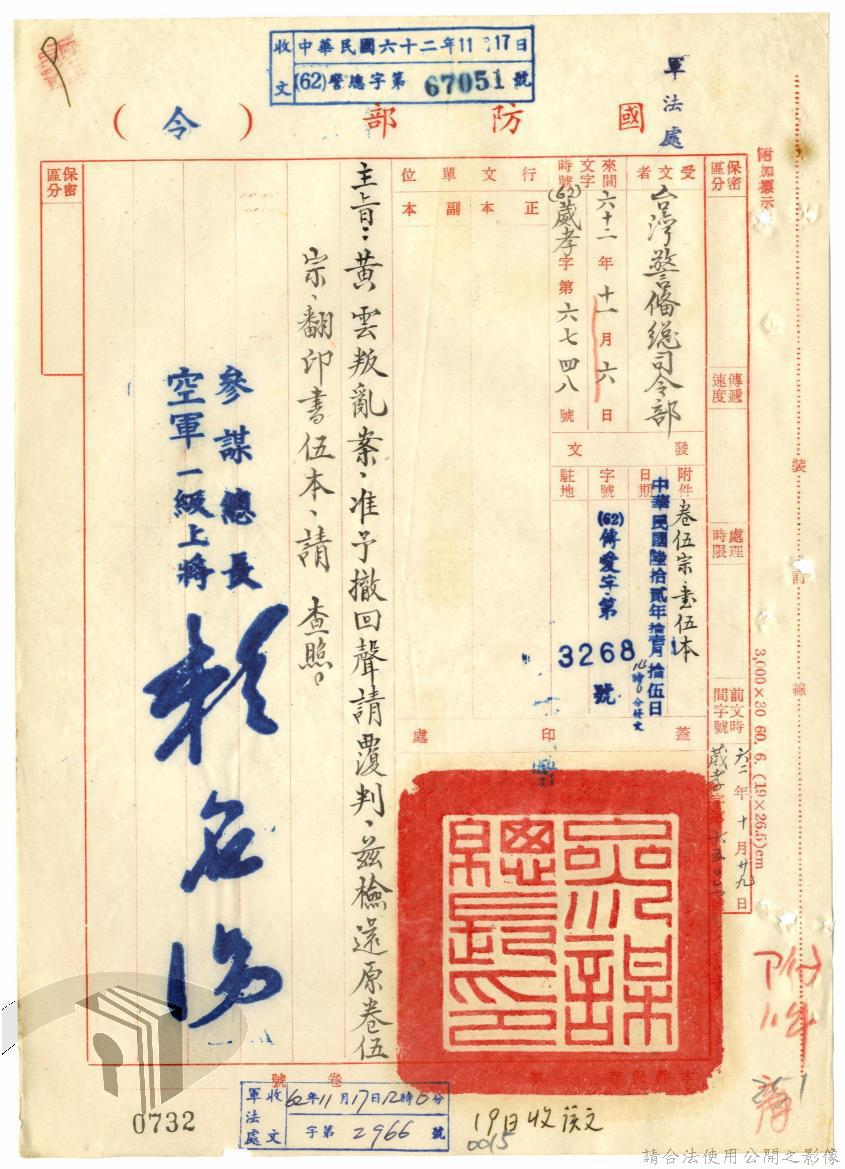 收文
中華民國六十二年11月17日
(62)警總字第 67051 號
軍法處
國防部(令)
附加標示
保密區分
傳遞速度
處理時限
前文時間字號
六二年十月廿九日
受文者
台灣警備總司令部
來文時間字號
六十二年十一月六日
(62)葳孝字第六七四八號
發文
附件
卷伍宗、書伍本
日期
中華民國陸拾貳年拾壹月拾伍日
字號
(62)傳愛字第
3268
號
駐地
行文單位
正本
副本
蓋印處
參謀總長印
主旨:黃雲叛亂案,准予撤回聲請覆判,茲檢還原卷伍
宗、翻印書伍本,請 查照。
參謀總長
空軍一級上將
賴名湯
保密區分
裝
訂
線
3,000×30 60. 6. (19×26.5)cm
附件
卷號
0732
軍法處
收文
62年11月17日12時0分
字第 2966 號
19日收誤文
0015
請合法使用公開之影像